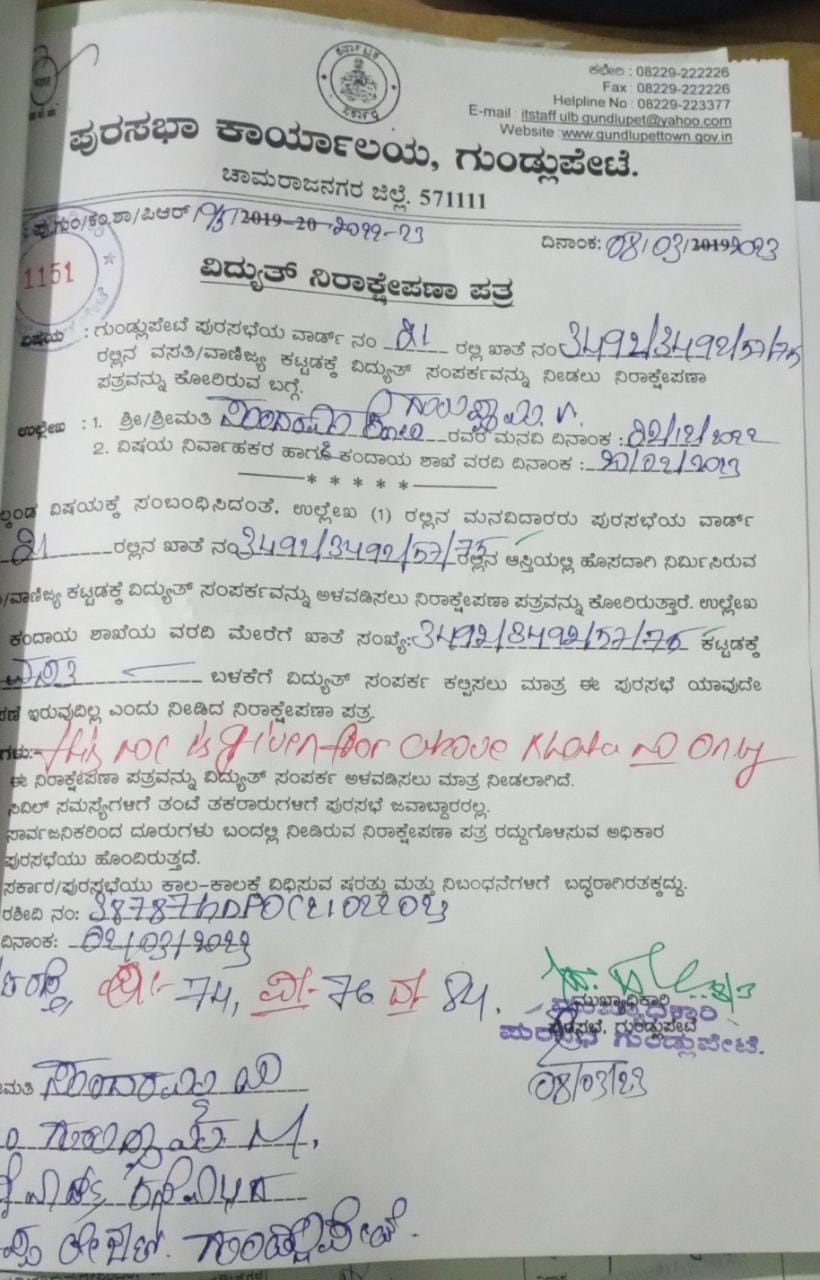 ಕರ್ನಾಟಕ ಸರ್ಕಾರ
ಕಛೇರಿ : 08229-222226
Fax : 08229-222226
Helpline No : 08229-223377
E-mail : itstaff ulb gundlupet@yahoo.com
Website :www.gundlupettown.gov.in
ಪುರಸಭಾ ಕಾರ್ಯಾಲಯ, ಗುಂಡ್ಲುಪೇಟೆ.
ಚಾಮರಾಜನಗರ ಜಿಲ್ಲೆ. 571111
: ಪು.ಗುಂ/ಕಂ.ಶಾ/ಪಿಆರ್/ 2019-20 2022-23
ದಿನಾಂಕ: 08/03/2019 2023
1151
ವಿದ್ಯುತ್ ನಿರಾಕ್ಷೇಪಣಾ ಪತ್ರ
ವಿಷಯ : ಗುಂಡ್ಲುಪೇಟೆ ಪುರಸಭೆಯ ವಾರ್ಡ್ ನಂ 21 ರಲ್ಲಿ ಖಾತೆ ನಂ 3492/3492/57/75
ರಲ್ಲಿನ ವಸತಿ/ವಾಣಿಜ್ಯ ಕಟ್ಟಡಕ್ಕೆ ವಿದ್ಯುತ್ ಸಂಪರ್ಕವನ್ನು ನೀಡಲು ನಿರಾಕ್ಷೇಪಣಾ
ಪತ್ರವನ್ನು ಕೋರಿರುವ ಬಗ್ಗೆ.
ಉಲ್ಲೇಖ : 1. ಶ್ರೀ/ಶ್ರೀಮತಿ ರವರ ಮನವಿ ದಿನಾಂಕ : 22/12/2022
2. ವಿಷಯ ನಿರ್ವಾಹಕರ ಹಾಗೂ ಕಂದಾಯ ಶಾಖೆ ವರದಿ ದಿನಾಂಕ : 20/02/2023
* * * * *
ಲ್ಕಂಡ ವಿಷಯಕ್ಕೆ ಸಂಬಂಧಿಸಿದಂತೆ, ಉಲ್ಲೇಖ (1) ರಲ್ಲಿನ ಮನವಿದಾರರು ಪುರಸಭೆಯ ವಾರ್ಡ್
21 ರಲ್ಲಿನ ಖಾತೆ ನಂ 3492/3492/57/75 ರಲ್ಲಿನ ಆಸ್ತಿಯಲ್ಲಿ ಹೊಸದಾಗಿ ನಿರ್ಮಿಸಿರುವ
/ವಾಣಿಜ್ಯ ಕಟ್ಟಡಕ್ಕೆ ವಿದ್ಯುತ್ ಸಂಪರ್ಕವನ್ನು ಅಳವಡಿಸಲು ನಿರಾಕ್ಷೇಪಣಾ ಪತ್ರವನ್ನು ಕೋರಿರುತ್ತಾರೆ. ಉಲ್ಲೇಖ
ಕಂದಾಯ ಶಾಖೆಯ ವರದಿ ಮೇರೆಗೆ ಖಾತೆ ಸಂಖ್ಯೆ: 3492/3492/57/75 ಕಟ್ಟಡಕ್ಕೆ
ವಸತಿ ಬಳಕೆಗೆ ವಿದ್ಯುತ್ ಸಂಪರ್ಕ ಕಲ್ಪಿಸಲು ಮಾತ್ರ ಈ ಪುರಸಭೆ ಯಾವುದೇ
ಪಣೆ ಇರುವುದಿಲ್ಲ ಎಂದು ನೀಡಿದ ನಿರಾಕ್ಷೇಪಣಾ ಪತ್ರ.
ಗಳು:- This NOC is given for above Khata no only
ಈ ನಿರಾಕ್ಷೇಪಣಾ ಪತ್ರವನ್ನು ವಿದ್ಯುತ್ ಸಂಪರ್ಕ ಅಳವಡಿಸಲು ಮಾತ್ರ ನೀಡಲಾಗಿದೆ.
ಸಿವಿಲ್ ಸಮಸ್ಯೆಗಳಿಗೆ ತಂಟೆ ತಕರಾರುಗಳಿಗೆ ಪುರಸಭೆ ಜವಾಬ್ದಾರರಲ್ಲ.
ಸಾರ್ವಜನಿಕರಿಂದ ದೂರುಗಳು ಬಂದಲ್ಲಿ ನೀಡಿರುವ ನಿರಾಕ್ಷೇಪಣಾ ಪತ್ರ ರದ್ದುಗೊಳಿಸುವ ಅಧಿಕಾರ
ಪುರಸಭೆಯು ಹೊಂದಿರುತ್ತದೆ.
ಸರ್ಕಾರ/ಪುರಸಭೆಯು ಕಾಲ-ಕಾಲಕ್ಕೆ ವಿಧಿಸುವ ಷರತ್ತು ಮತ್ತು ನಿಬಂಧನೆಗಳಿಗೆ ಬದ್ಧರಾಗಿರತಕ್ಕದ್ದು.
ರಶೀದಿ ನಂ:
ದಿನಾಂಕ: 02/03/2023
74, 76 84.
ಮುಖ್ಯಾಧಿಕಾರಿ
ಪುರಸಭೆ, ಗುಂಡ್ಲುಪೇಟೆ
ಮುಖ್ಯಾಧಿಕಾರಿ
ಪುರಸಭೆ ಗುಂಡ್ಲುಪೇಟೆ.
08/03/23
ಮತಿ
ಗುಂಡ್ಲುಪೇಟೆ.